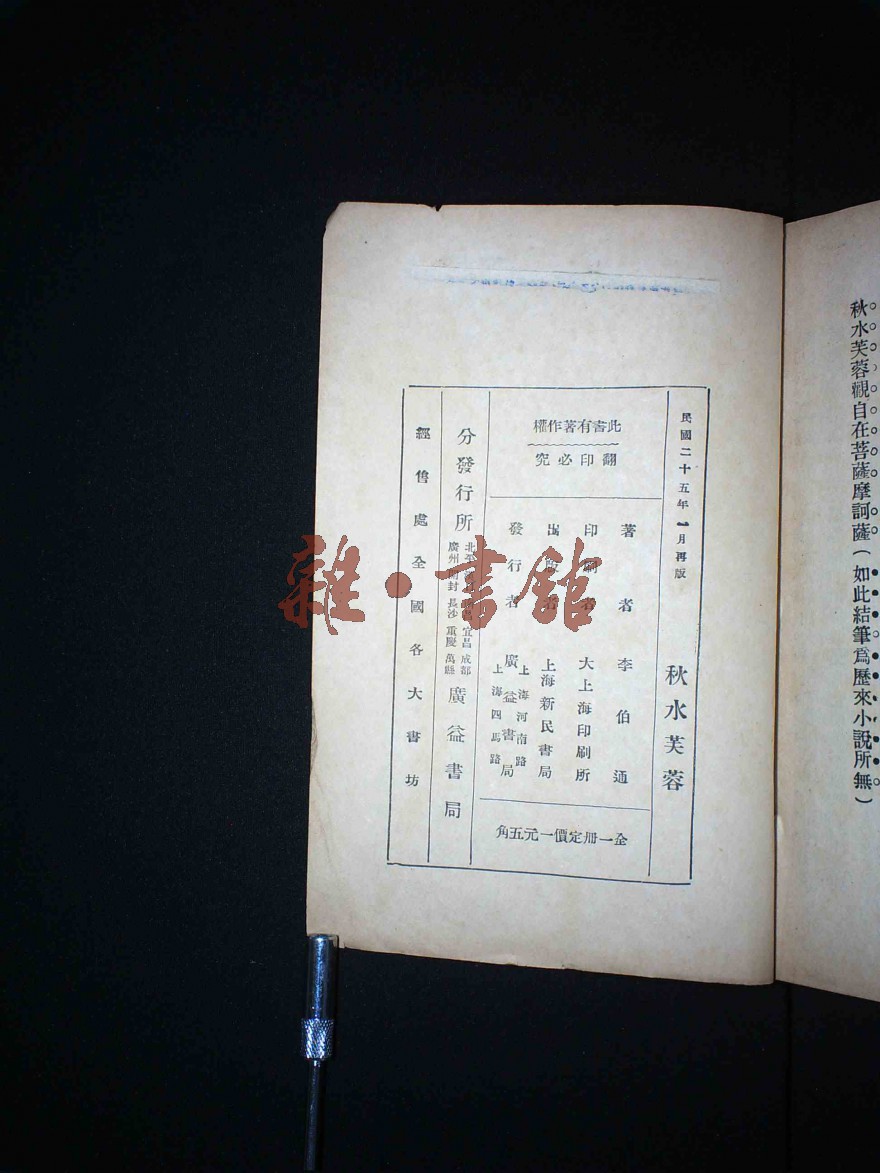 秋水芙蓉觀自在菩薩摩訶薩(如此結筆爲歷來小說所無)
民國二十五年一月再版
秋水芙蓉
此書有著作權
翻印必究
著者 李伯通
印刷者 大上海印刷所
出版者 上海新民書局
發行者 廣益書局
上海河南路
上海四馬路
全一冊定價一元五角
分發行所
北平 南昌 宜昌 成都
廣州 開封 長沙 重慶 萬縣
廣益書局
經售處全國各大書坊
雜·書館